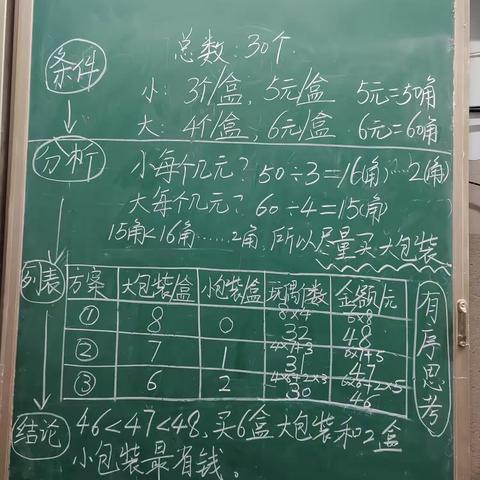 条件
总数：30个
小：3个/盒，5元/盒 5元=50角
大：4个/盒，6元/盒 6元=60角
分析
小每个几元？50÷3=16(角)……2(角)
大每个几元？60÷4=15(角)
15角<16角……2角，所以尽量买大包装
列表
方案 大包装/盒 小包装/盒 玩偶个数 金额/元
① 8 0 8×4 32 6×8 48
② 7 1 4×7+3 31 6×7+5 47
③ 6 2 4×6+2×3 30 6×6+2×5 46
有序思考
结论
46<47<48，买6盒大包装和2盒
小包装最省钱。